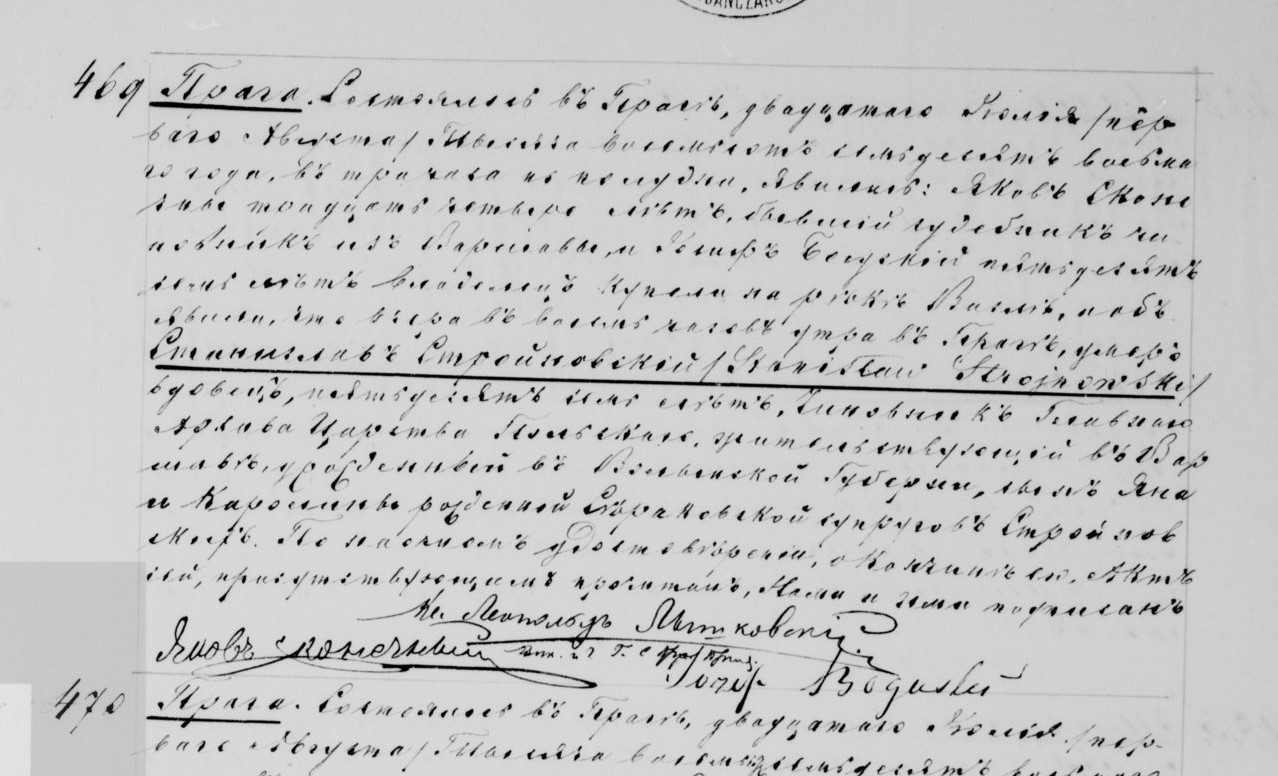 JANCZAR
469 Прага. Состоялось въ Прагѣ, двадцатаго Юлія /пер
ваго Августа/ Тысяча восемьсотъ семьдесятъ восьма
го года, въ три часа по полудни, явились: Яковъ Сконе
чные тридцать четыре лѣтъ, бывшій судебникъ чи
новникъ изъ Варшавы, и Іосифъ Богускій пятьдесятъ
семь лѣтъ владѣлецъ купели на рѣкѣ Вислѣ, и объ
явили, что вчера въ восемь часовъ утра въ Прагѣ, умеръ
Станиславъ Стройновскій /Stanisław Strojnowski/
вдовецъ, пятьдесятъ семь лѣтъ, Чиновникъ Главнаго
Архива Царства Польскаго, жительствующій въ Вар
шавѣ, урожденный въ Виленской Губерніи, сынъ Яна
и Каролины рожденной Сѣраковской супруговъ Стройнов
скихъ. По настномъ удостовѣреніи, о кончинѣ его, Актъ
сей, присутствующимъ прочитанъ, Нами и ими подписанъ
Кс. Леопольдъ
Яковъ Сконечный
Józef Boguski
470 Прага. Состоялось въ Прагѣ, двадцатаго Юлія /пер-
ваго Августа/ Тысяча восемьсотъ семьдесятъ восьмаго